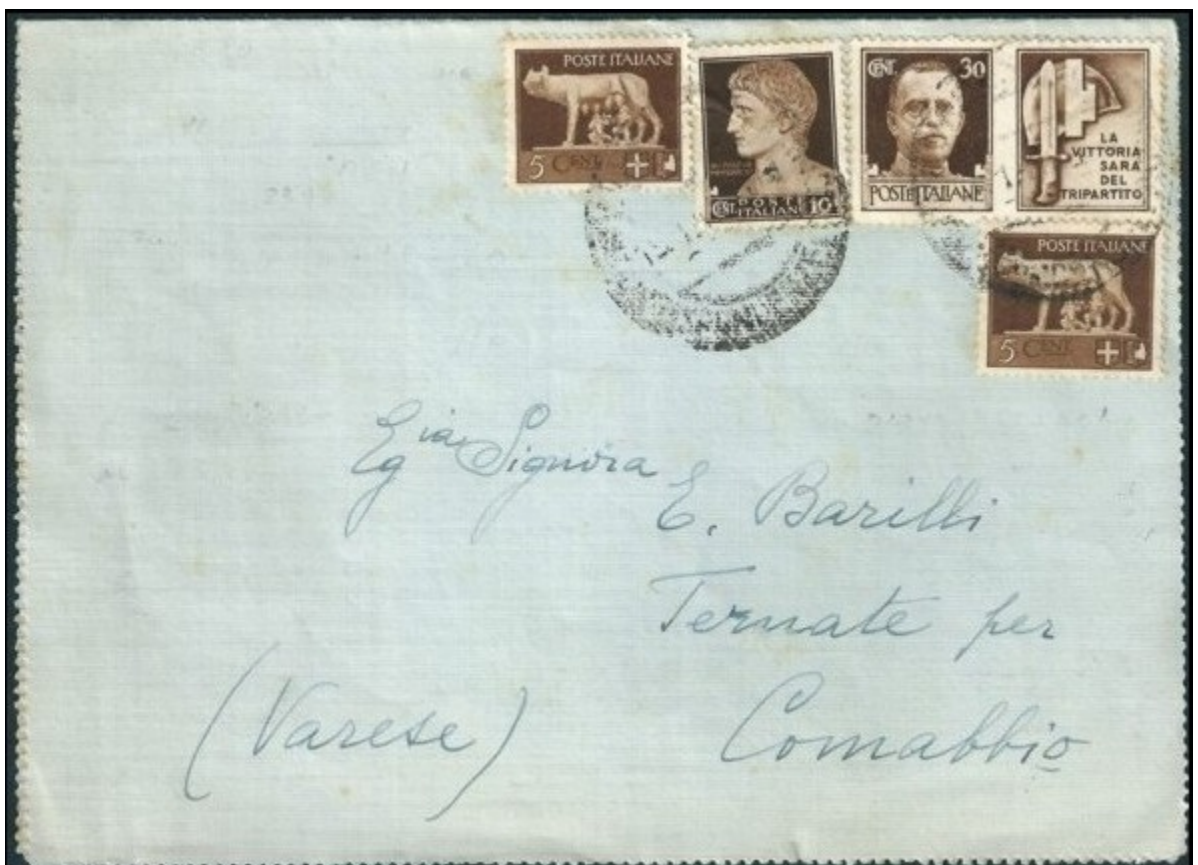 POSTE ITALIANE
5 CENT
CENT. POSTE ITALIANE 10
CENT. 30
POSTE ITALIANE
LA
VITTORIA
SARA
DEL
TRIPARTITO
POSTE ITALIANE
5 CENT
Egia Signora
E. Barilli
Ternate per
Comabbio
(Varese)